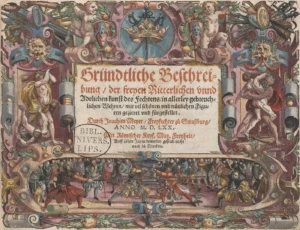 Gründtliche Beschrei-
bung / der freyen Ritterlichen unnd
Adelichen kunst des Fechtens / in allerley gebreuch-
lichen Wehren / mit vil schönen und nützlichen Figu-
ren gezieret und fürgestellet.
Durch Joachim Meyer / Freyfechter zu Strasburg /
ANNO M. D. LXX.
Mit Römischer Keys. May. Freyheit /
BIBL.
VNIVERS.
LIPS.